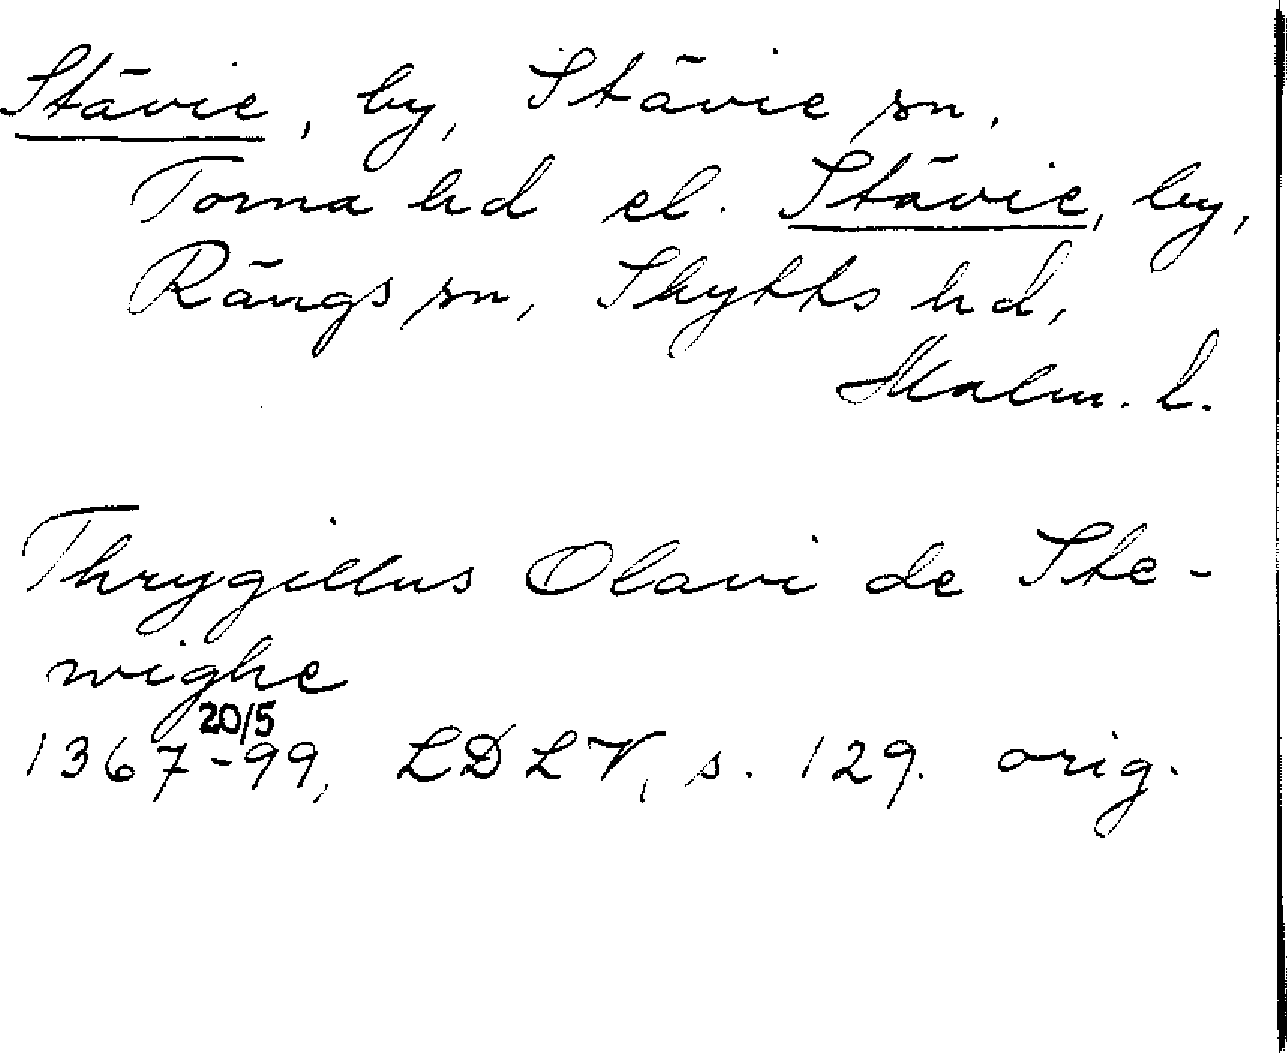 Stävie, by, Stävie sn,
Torna hd el. Stävie, by,
Rängs sn, Skytts hd,
Malm. l.
Thrygillus Olavi de Ste-
wighe
1367-99, 20/5 LDLV, s. 129. orig.